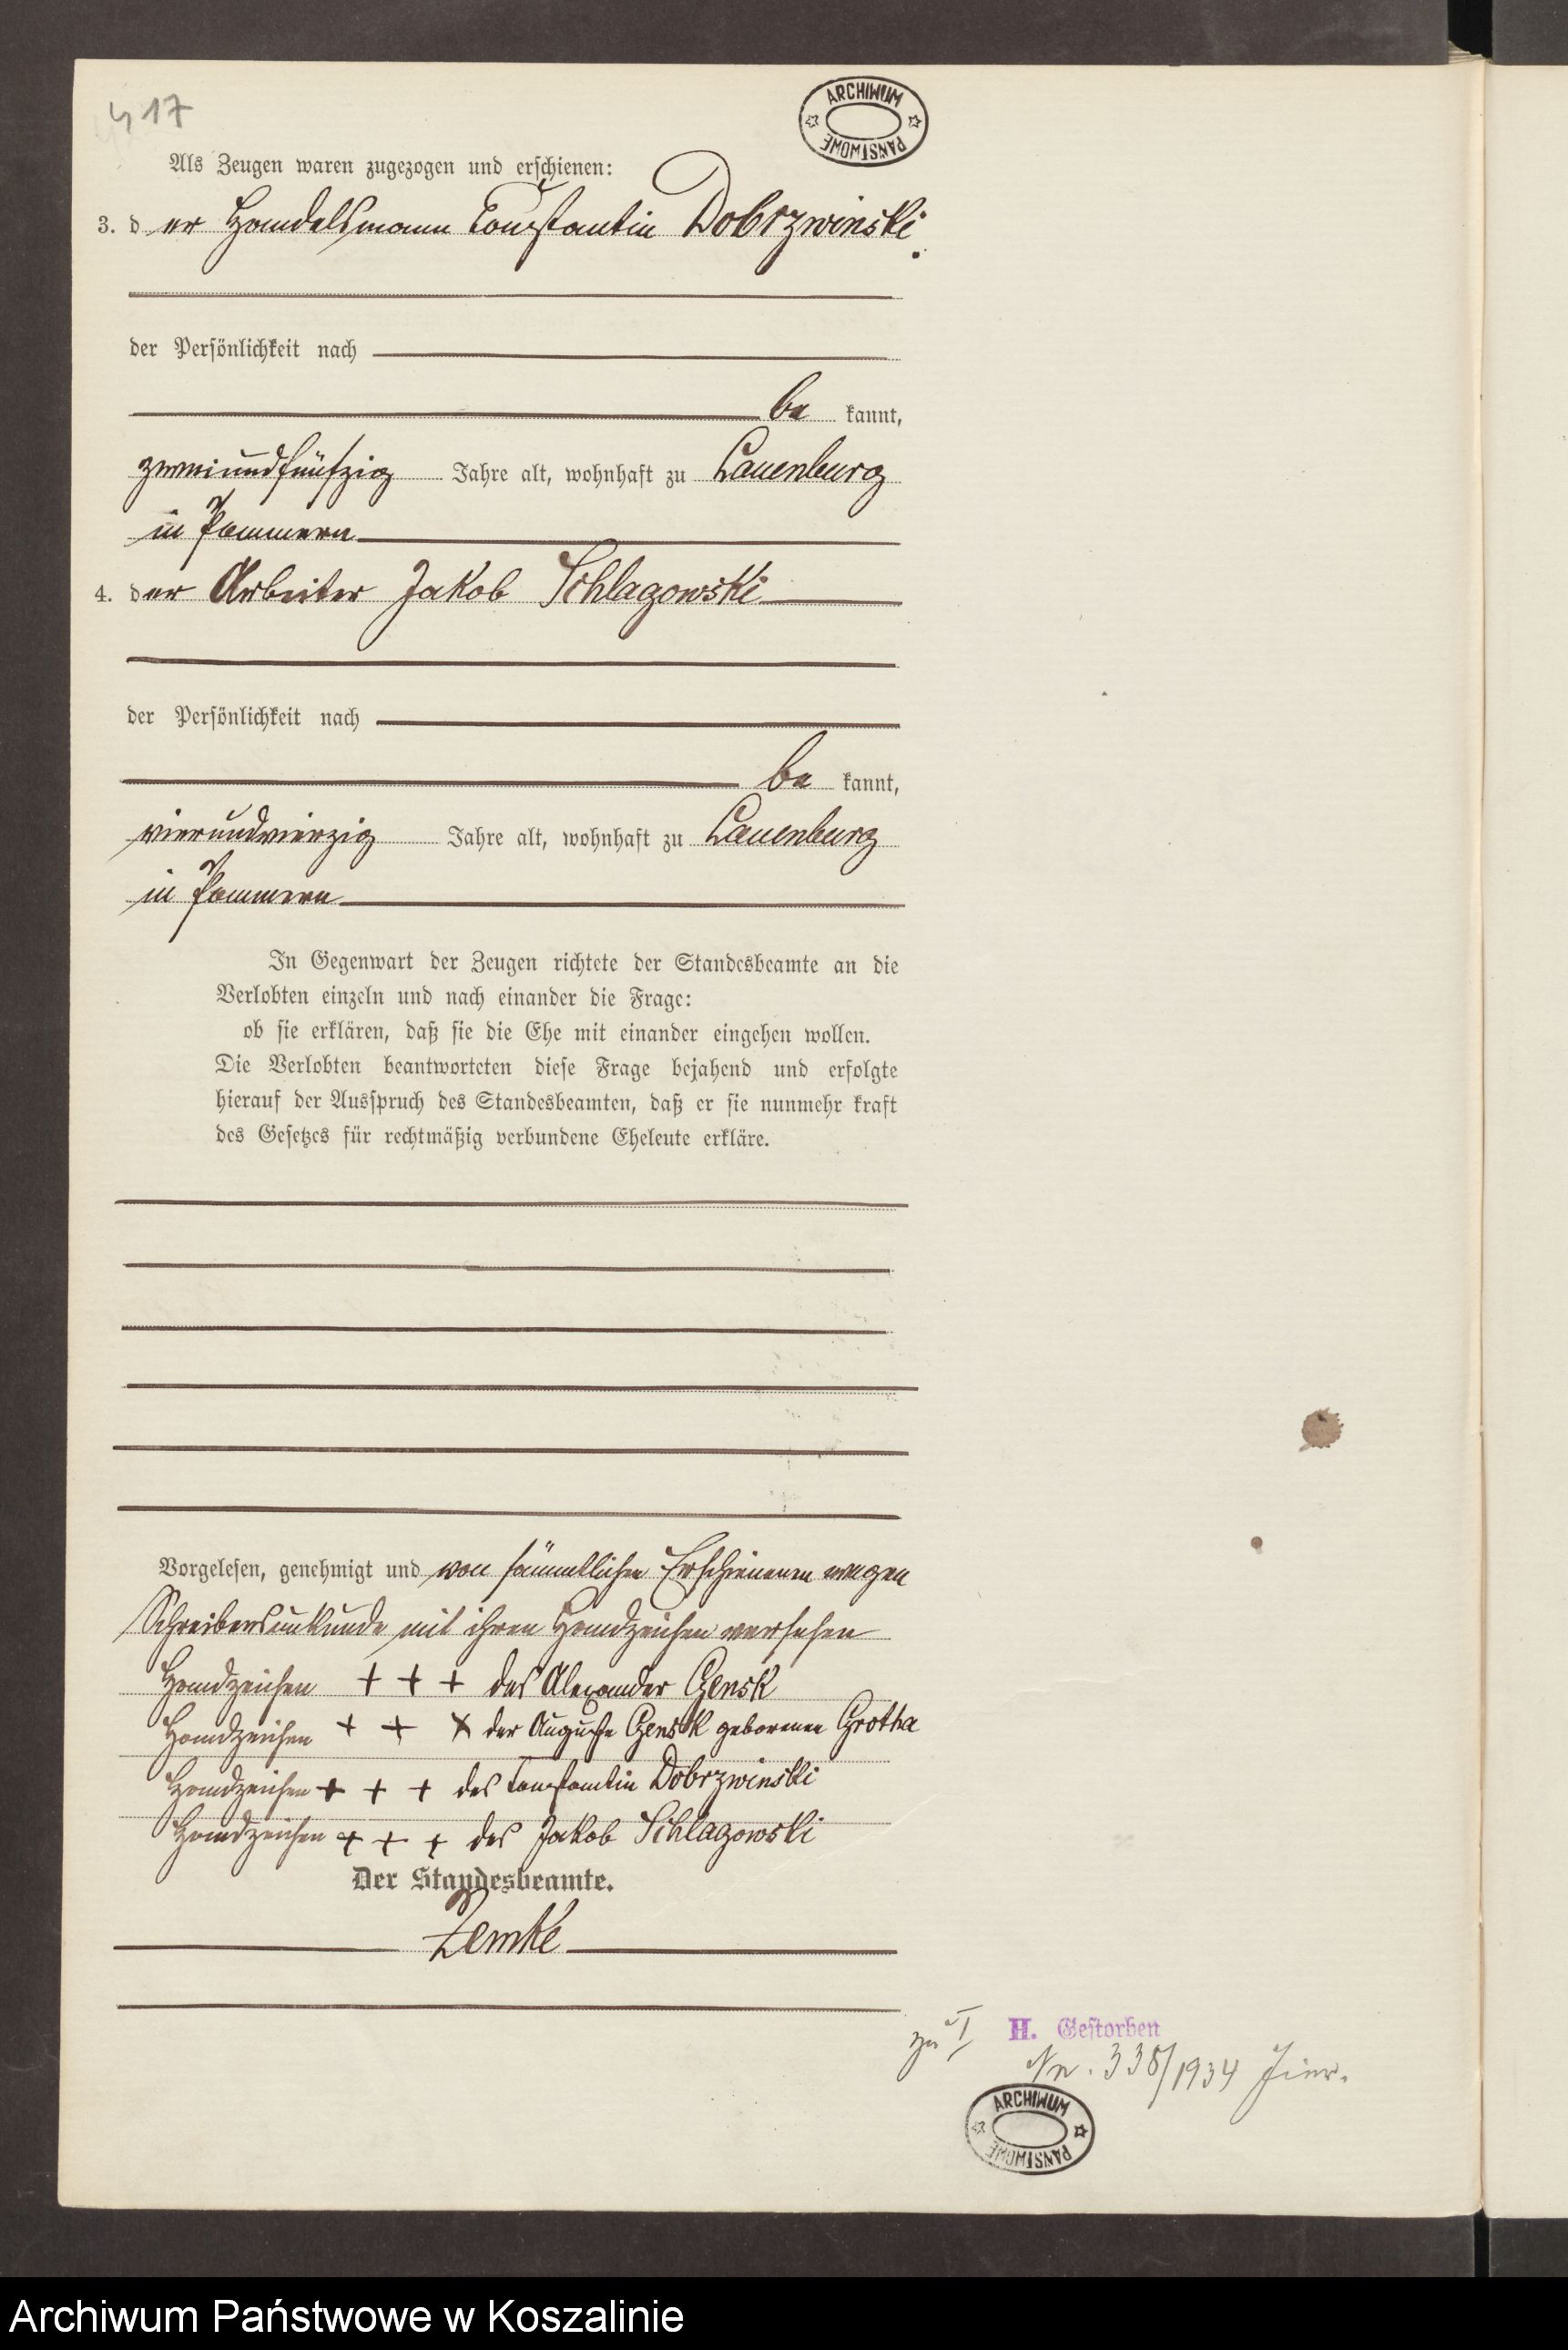 417
ARCHIWUM PAŃSTWOWE
Als Zeugen waren zugezogen und erschienen:
3. der Handelsmann Constantin Dobrzwinski.
der Persönlichkeit nach
be kannt,
zweiundfünfzig Jahre alt, wohnhaft zu Lauenburg
in Pommern
4. der Arbeiter Jakob Schlagowski
der Persönlichkeit nach
be kannt,
vierundvierzig Jahre alt, wohnhaft zu Lauenburg
in Pommern
In Gegenwart der Zeugen richtete der Standesbeamte an die
Verlobten einzeln und nach einander die Frage:
ob sie erklären, daß sie die Ehe mit einander eingehen wollen.
Die Verlobten beantworteten diese Frage bejahend und erfolgte
hierauf der Ausspruch des Standesbeamten, daß er sie nunmehr kraft
des Gesetzes für rechtmäßig verbundene Eheleute erkläre.
Vorgelesen, genehmigt und von sämmtlichen Erschienenen wegen
Schreibensunkunde mit ihren Handzeichen versehen
Handzeichen + + + des Alexander Gensk
Handzeichen + + + der Auguste Gensk geborenen Grotha
Handzeichen + + + des Constantin Dobrzwinski
Handzeichen + + + des Jakob Schlagowski
Der Standesbeamte.
Zemke
zu I H. Gestorben
Nr. 338/1934 hier.
ARCHIWUM PAŃSTWOWE
Archiwum Państwowe w Koszalinie